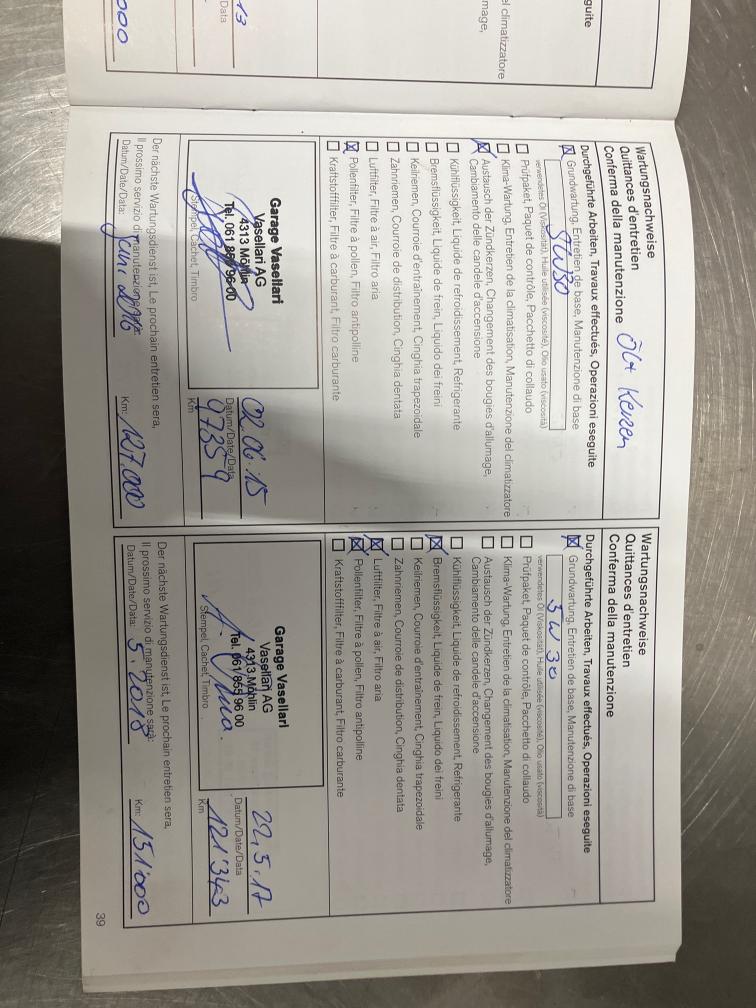 13
Data
000
guite
el climatizzatore
mage,
Wartungsnachweise
Quittances d'entretien
Conferma della manutenzione
Öl+ Kerzen
Durchgeführte Arbeiten, Travaux effectués, Operazioni eseguite
Grundwartung, Entretien de base, Manutenzione di base
5W30
verwendetes Öl (Viskosität), Huile utilisée (viscosité), Olio usato (viscosità)
Prüfpaket, Paquet de contrôle, Pacchetto di collaudo
Klima-Wartung, Entretien de la climatisation, Manutenzione del climatizzatore
Austausch der Zündkerzen, Changement des bougies d'allumage,
Cambiamento delle candele d'accensione
Kühlflüssigkeit, Liquide de refroidissement, Refrigerante
Bremsflüssigkeit, Liquide de frein, Liquido dei freini
Keilriemen, Courroie d'entraînement, Cinghia trapezoidale
Zahnriemen, Courroie de distribution, Cinghia dentata
Luftfilter, Filtre à air, Filtro aria
Pollenfilter, Filtre à pollen, Filtro antipolline
Kraftstofffilter, Filtre à carburant, Filtro carburante
Garage Vasellari
Vasellari AG
4313 Möhlin
Tel. 061 855 96 00
Stempel, Cachet, Timbro
02.06.15
Datum/Date/Data
97359
Km
Der nächste Wartungsdienst ist, Le prochain entretien sera,
Il prossimo servizio di manutenzione sarà:
Datum/Date/Data: Juni 2016
Km: 127.000
Wartungsnachweise
Quittances d'entretien
Conferma della manutenzione
Durchgeführte Arbeiten, Travaux effectués, Operazioni eseguite
Grundwartung, Entretien de base, Manutenzione di base
5W30
verwendetes Öl (Viskosität), Huile utilisée (viscosité), Olio usato (viscosità)
Prüfpaket, Paquet de contrôle, Pacchetto di collaudo
Klima-Wartung, Entretien de la climatisation, Manutenzione del climatizzatore
Austausch der Zündkerzen, Changement des bougies d'allumage,
Cambiamento delle candele d'accensione
Kühlflüssigkeit, Liquide de refroidissement, Refrigerante
Bremsflüssigkeit, Liquide de frein, Liquido dei freini
Keilriemen, Courroie d'entraînement, Cinghia trapezoidale
Zahnriemen, Courroie de distribution, Cinghia dentata
Luftfilter, Filtre à air, Filtro aria
Pollenfilter, Filtre à pollen, Filtro antipolline
Kraftstofffilter, Filtre à carburant, Filtro carburante
Garage Vasellari
Vasellari AG
4313 Möhlin
Tel. 061 855 96 00
Stempel, Cachet, Timbro
22.5.17
Datum/Date/Data
121'343
Km
Der nächste Wartungsdienst ist, Le prochain entretien sera,
Il prossimo servizio di manutenzione sarà:
Datum/Date/Data: 5.2018
Km: 151'000
39